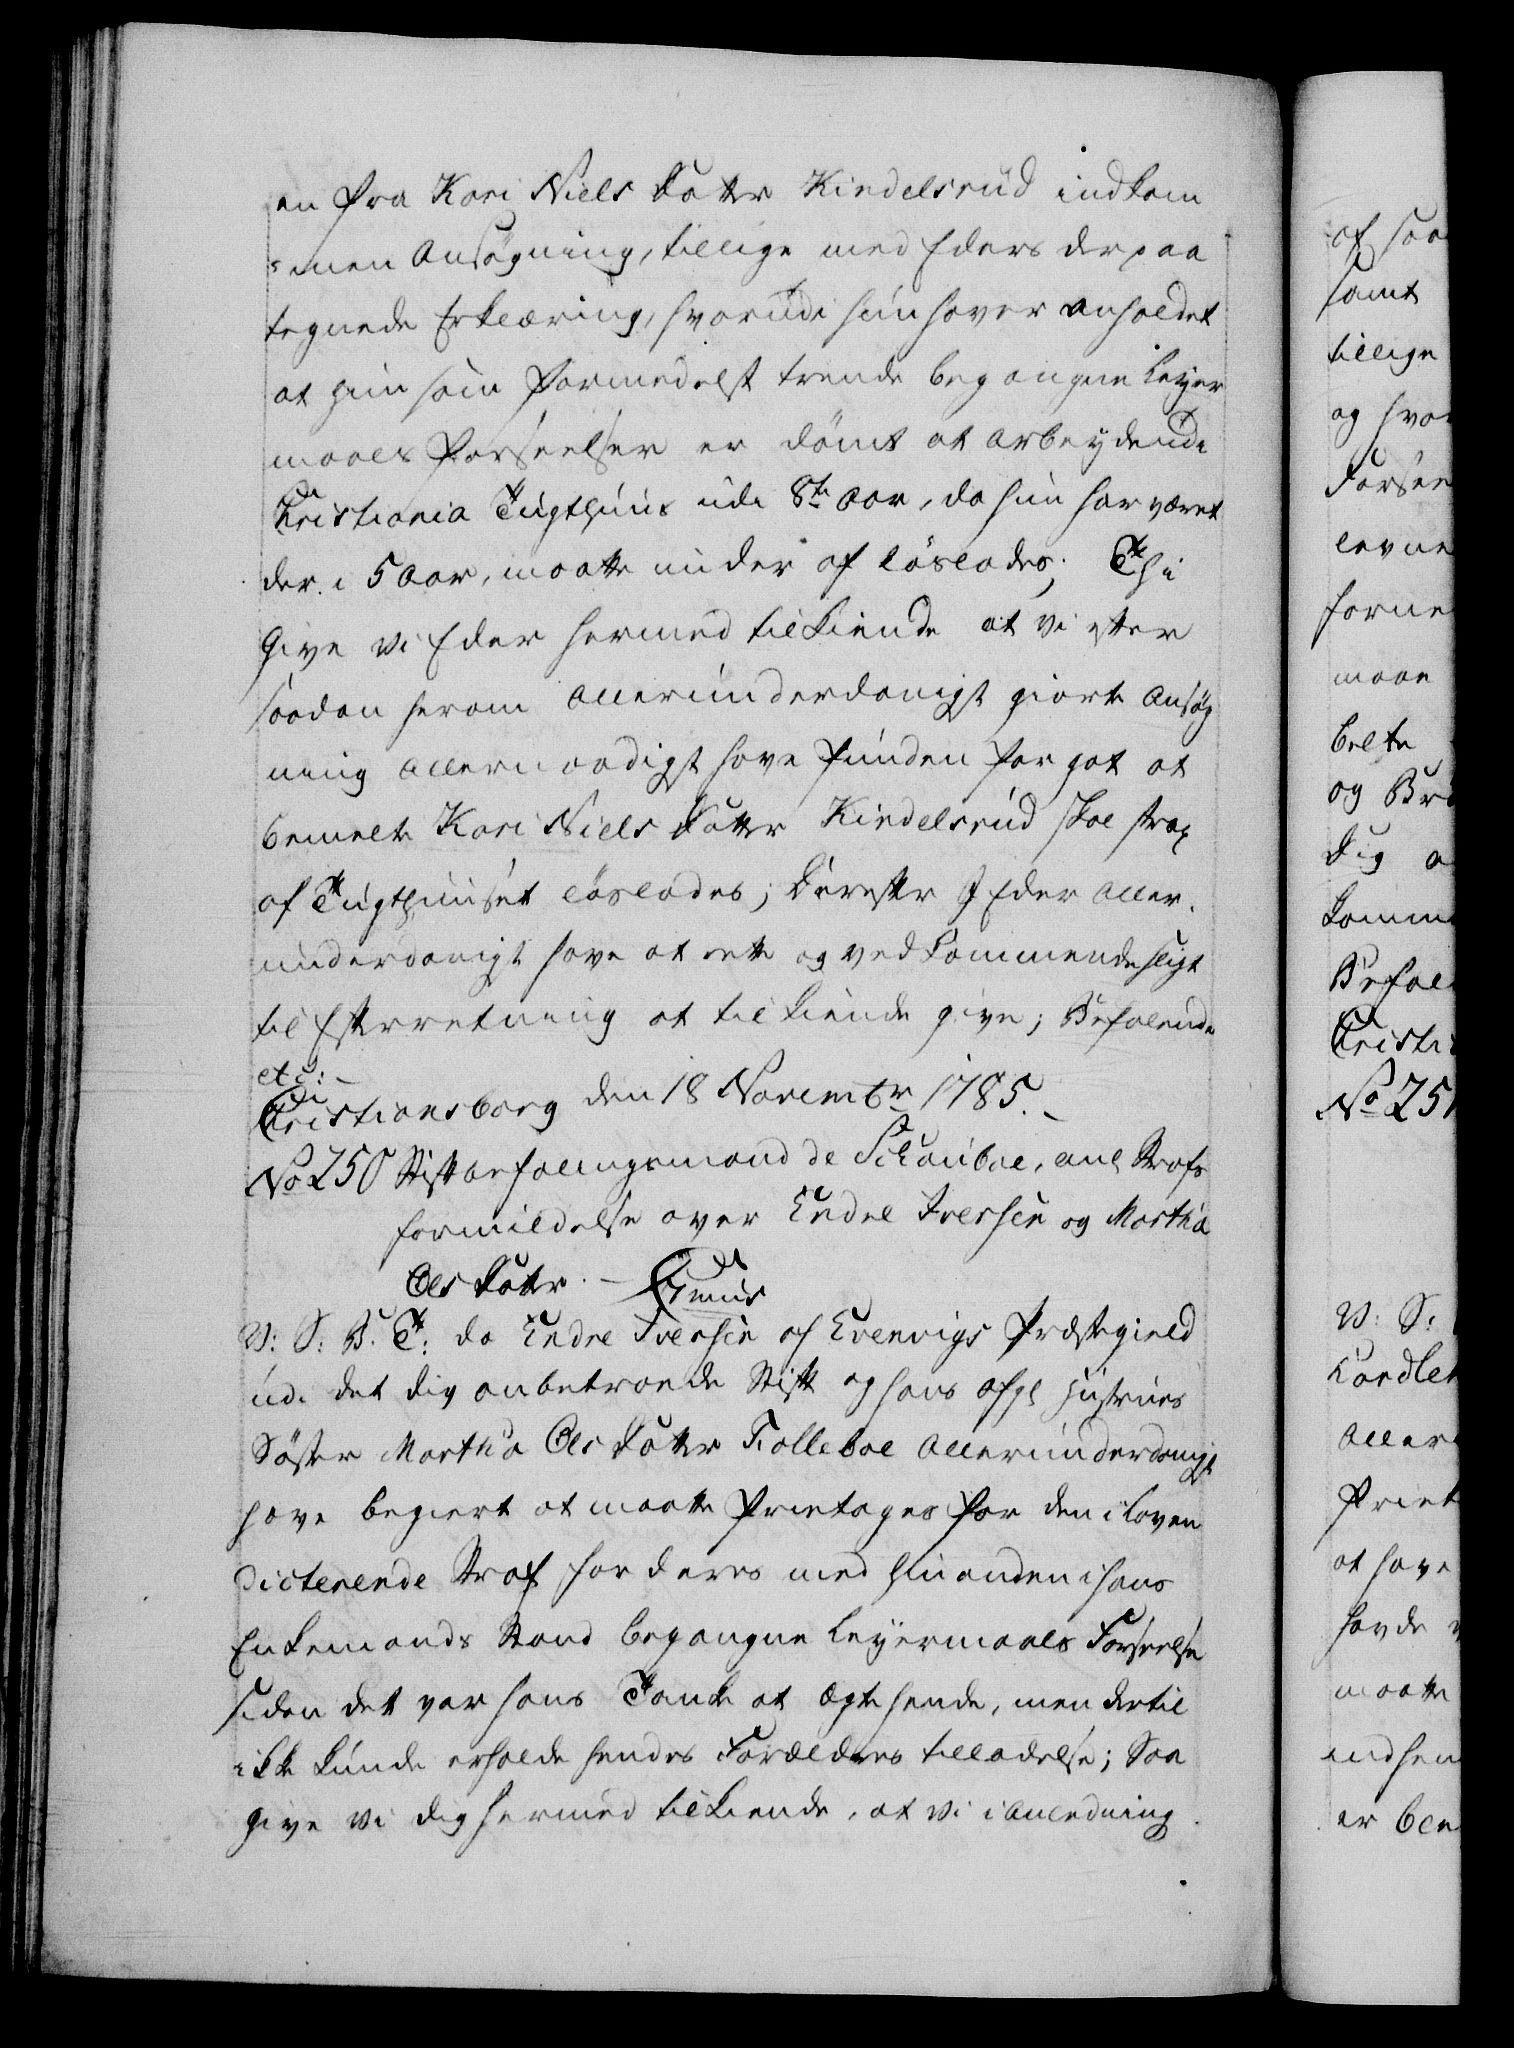 en fra Kari Niels Datter Kindelsrud indkom
=men Ansøgning, tillige med Eders derpaa
tegnede Erklæring, hvorudi hun haver anholdet
at hun som formedelst trende begangne Leyer
maals Forseelser er dømt at arbeyde udi
Christiania Tugthuus udi 8te Aar, da hun har været
der i 5 Aar, maatte nu der af løslades; Thi
Give vi Eder hermed tilkiende at vi efter
saadan herom allerunderdanigst giorte Ansøg
ning allernaadigst have funden for got at
bemelte Kari Niels Datter Kindelsrud skal strax
af Tugthuuset løslades; Derefter I Eder aller-
underdanigst have at rette og vedkommende sligt
til Efterretning at tilkiende give; Befalende
etc:
Christiansborg den 18 Novembr 1785.
No 250 Stiftbefalingsmand de Schouboe, anl Strafs
formildelse over Endre Iversen og Martha
Ols Datter. – Gratis
V: S: B: T: da Endre Iversen af Evenvigs Præstegield
udi det dig anbetroede Stift og hans afgl Hustrues
Søster Martha Ols Datter Tolleboe allerunderdanigst
have begiert at maatte frietages for den i Loven
dicterende Straf for deres med hinanden i hans
Enkemands Stand begangne Leyermaals Forseelse
siden det var hans Tanke at ægte hende, men dertil
ikke kunde erholde hendes Forældres tilladelse; Saa
give vi dig hermed tilkiende, at vi i anledning
af saa
samt
tillige
og hvor
Forsee
levne
forne
maae
belte
og Br
dig a
komme
Befal
Christi
No 251
V: S:
Aller
friet
at have
havde
maatte
indsen
er ble